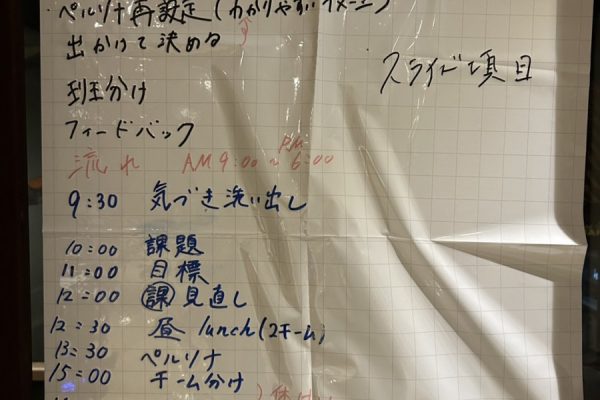 ・ペルソナ再設定(わかりやすいイメージ)
出かけて決める
スライド項目
班分け
フィードバック
流れ AM 9:00 ~ PM 6:00
9:30 気づき洗い出し
10:00 課題
11:00 目標
12:00 課見直し
12:30 昼 lunch(2チーム)
13:30 ペルソナ
15:00 チーム分け